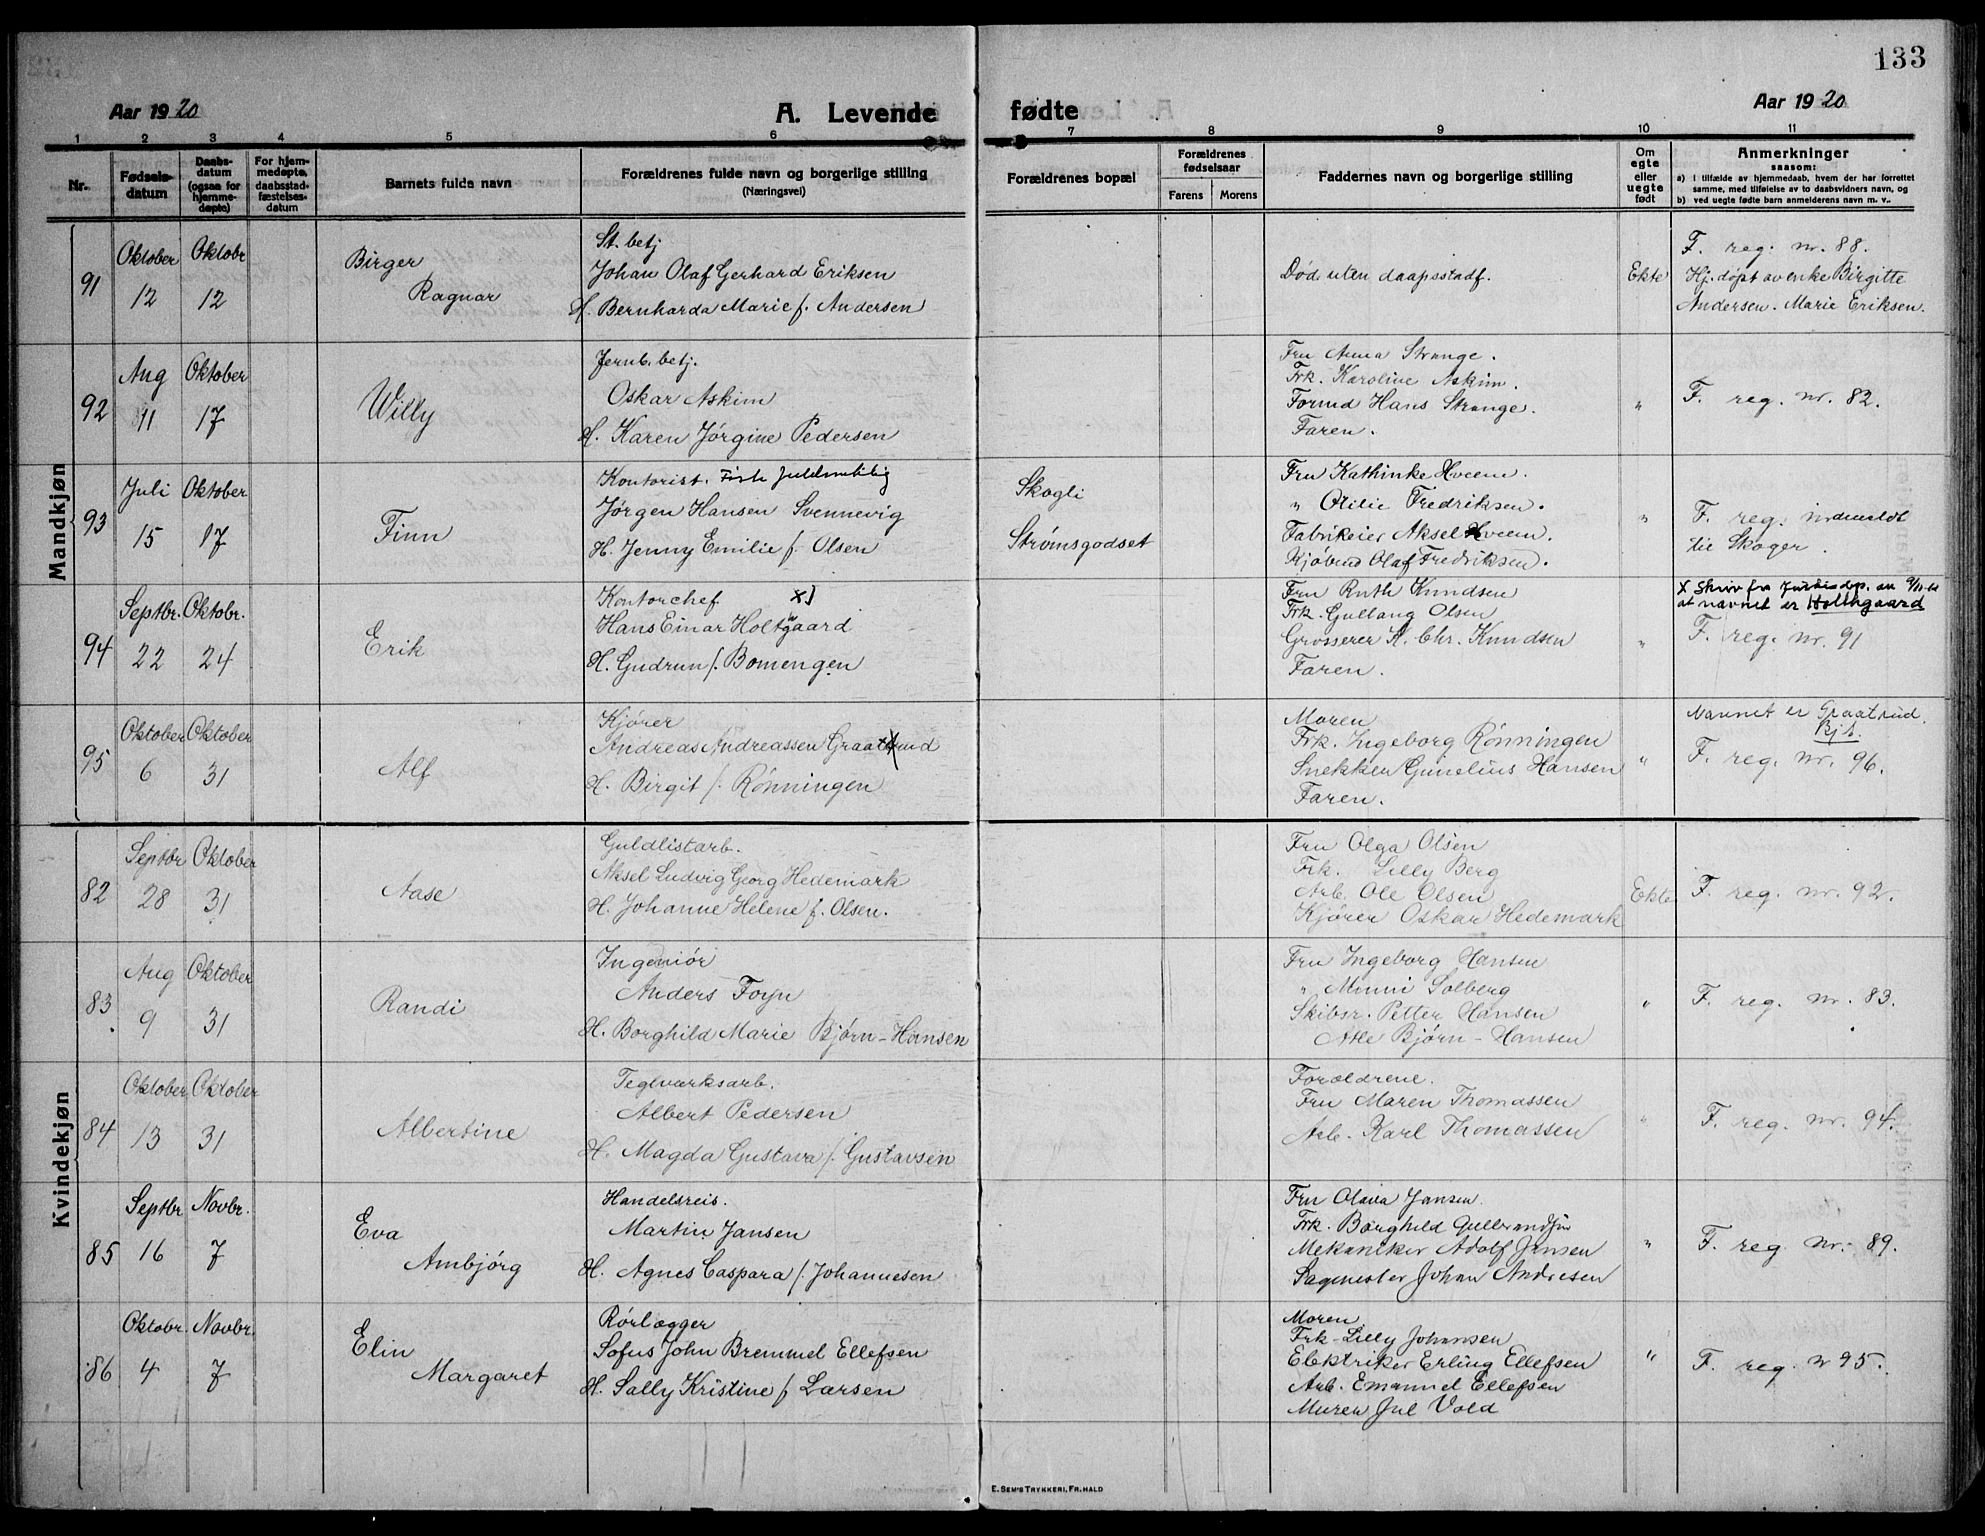 133
Aar 1920
A. Levende
fødte
Aar 1920
1 2 3 4 5 6 7 8 9 10 11
Nr.
Fødsels-
datum
Daabs-
datum
(ogsaa for
hjemme-
døpte)
For hjem-
medøpte,
daabsstad-
fæstelses-
datum
Barnets fulde navn
Forældrenes fulde navn og borgerlige stilling
(Næringsvei)
Forældrenes bopæl
Forældrenes
fødselsaar
Farens Morens
Faddernes navn og borgerlige stilling
Om
egte
eller
uegte
født
Anmerkninger
saasom:
a) i tilfælde av hjemmedaab, hvem der har forrettet
samme, med tilføielse av to daabsvidners navn, og
b) ved uegte fødte barn anmelderens navn m. v..
Mandkjøn
91
Oktober
12
Oktobr
12
Birger
Ragnar
St. betj
Johan Olaf Gerhard Eriksen
H. Bernharda Marie f. Andersen
Død uten daapsstadf.
Ekte
F. reg. nr. 88.
Hj. døpt av enke Birgitte
Andersen. Marie Eriksen.
92
Aug
11
Oktober
17
Willy
Jernb. betj.
Oskar Askim
H. Karen Jørgine Pedersen
Fru Anna Strange.
Frk. Karoline Askim.
Formd Hans Strange.
Faren.
"
F. reg. nr. 82.
93
Juli
15
Oktober
17
Finn
Kontorist.
Jørgen Hansen Svennevig
H. Jenny Emilie f. Olsen
Skogli
Strømsgodset
Fru Kathinke Hveem.
" Otilie Fredriksen.
Fabrikeier Aksel Hveem.
Kjøbmd Olaf Fredriksen.
"
F. reg. indmeldt
til Skoger.
94
Septbr.
22
Oktobr.
24
Erik
Kontorchef x)
Hans Einar Holtgaard
H. Gudrun f. Bomengen
Fru Ruth Knudsen
Frk. Gullaug Olsen
Grosserer K. Chr. Knudsen
Faren.
"
x Skriv fra Justisdep. au
at navnet er Holthgaard
F. reg. nr. 91
95
Oktober
6
Oktober
31
Alf
Kjører
Andreas Andreassen Graatrud
H. Birgit f. Rønningen
Moren
Frk. Ingeborg Rønningen
Snekker Gunelius Hansen
Faren.
"
Navnet er Graatrud.
F. reg. nr. 96.
Kvindekjøn
82
Septbr
28
Oktober
31
Aase
Guldlistarb.
Aksel Ludvig Georg Hedemark
H. Johanne Helene f. Olsen.
Fru Olga Olsen
Frk. Lilly Berg
Arb. Ole Olsen
Kjører Oskar Hedemark
Ekte
F. reg. nr. 92.
83
Aug
9
Oktober
31
Randi
Ingeniør
Anders Foyn
H. Borghild Marie Bjørn-Hansen
Fru Ingeborg Hansen
" Minni Solberg
Skibsr. Petter Hansen
Atle Bjørn-Hansen
"
F. reg. nr. 83.
84
Oktober
13
Oktober
31
Albertine
Teglværksarb.
Albert Pedersen
H. Magda Gustava f. Gustavsen
Forældrene.
Fru Maren Thomassen
Arb. Karl Thomassen
"
F. reg. nr. 94.
85
Septbr
16
Novbr.
7
Eva
Ambjørg
Handelsreis.
Martin Jansen
H. Agnes Caspara f. Johannesen
Fru Olava Jansen.
Frk. Borghild
Mekaniker Adolf Jansen
Sagmester Johan Andresen
"
F. reg nr. 89.
86
Oktobr.
4
Novbr.
7
Elin
Margaret
Rørlægger
Sofus John Bremmel Ellefsen
H. Sally Kristine f Larsen
Moren
Frk. Lilly Johansen
Elektriker Erling Ellefsen
Arb. Emanuel Ellefsen
Murer Jul Vold
"
F. reg. nr 95.
E. SEM'S TRYKKERI, FR.HALD